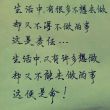 生活中有很多不想做的事
却又不得不做的事
这是责任…
生活中又有许多想做
却又不能去做的事
这便是命!